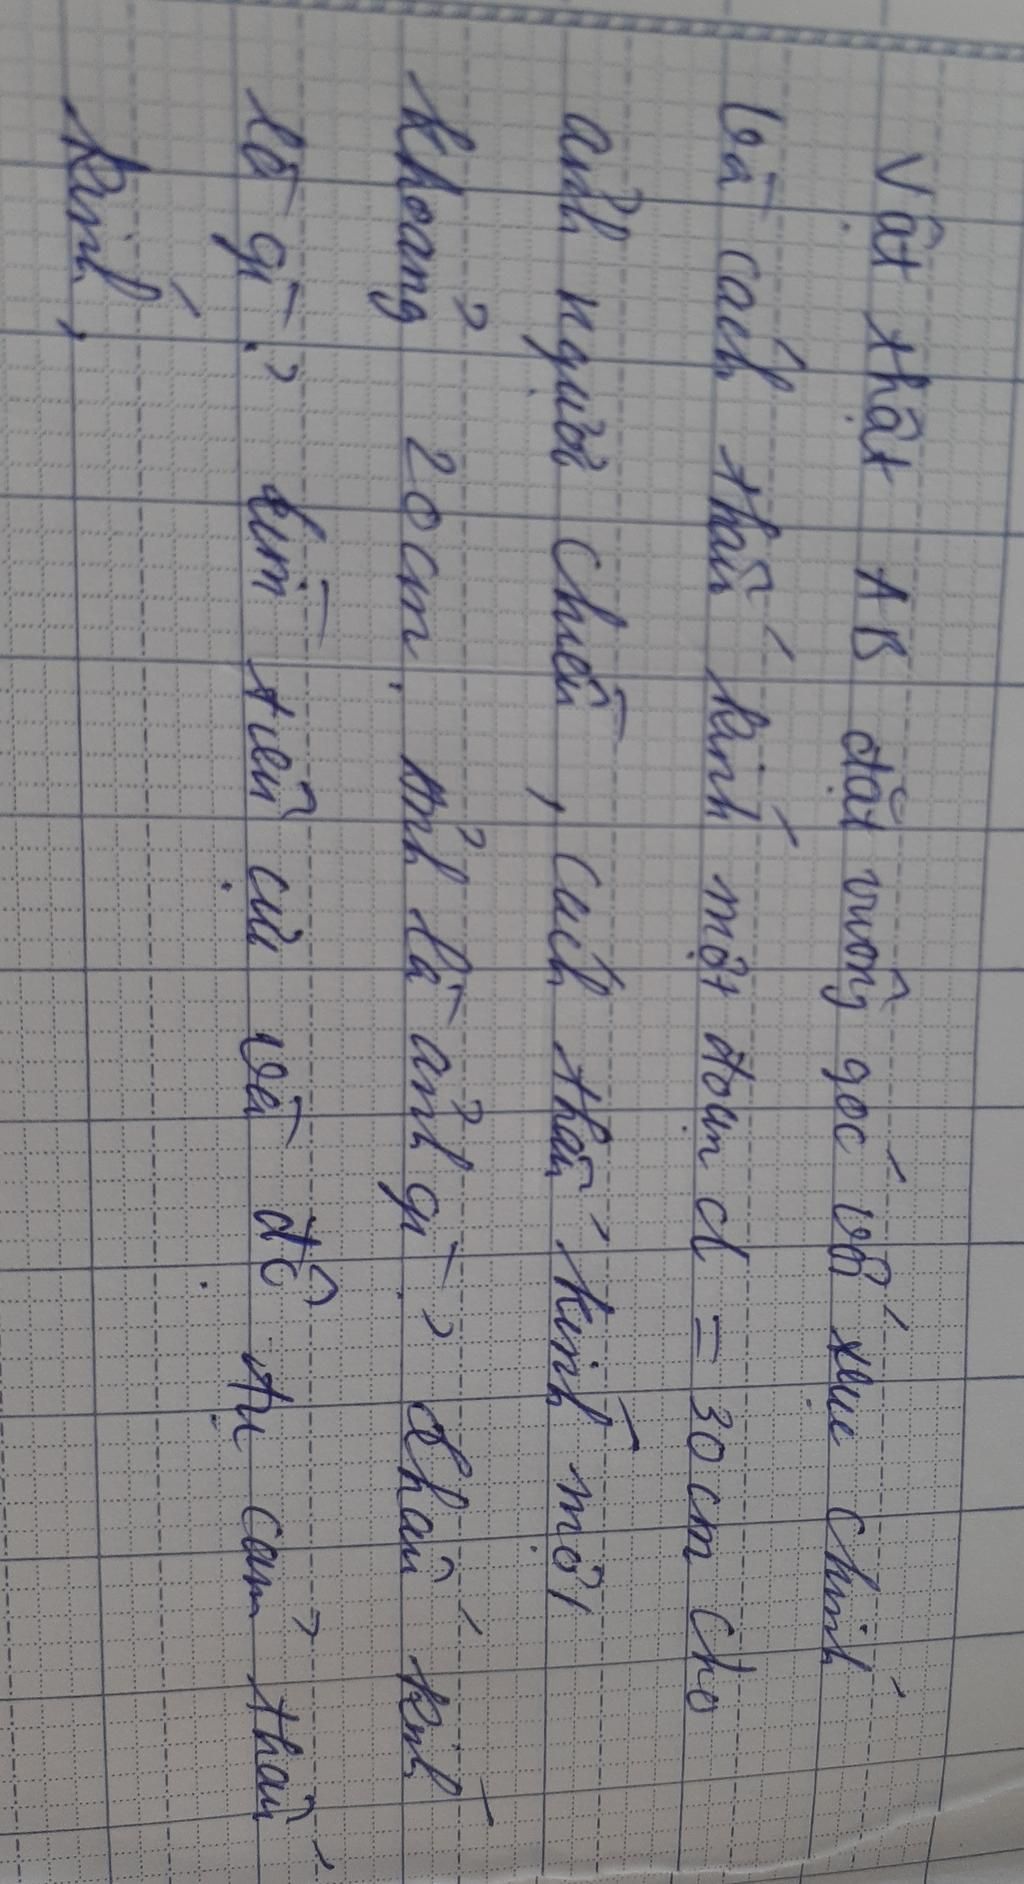 Vật thật AB đặt vuông góc với trục chính
và cách thấu kính một đoạn d = 30 cm cho
ảnh ngược chiều, cách thấu kính một
khoảng 20 cm. Ảnh là ảnh gì? thấu kính
là gì? tìm tiêu cự và độ tụ của thấu
kính.